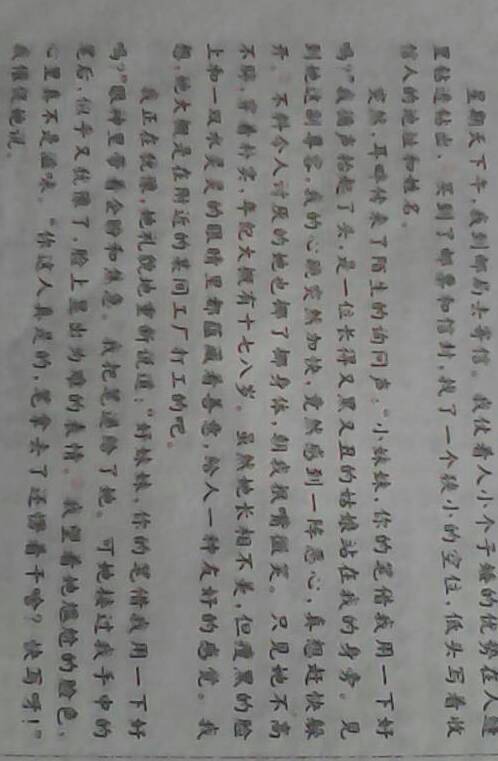 星期天下午，我到邮局去寄信。我仗着人小个子矮的优势在人缝
里钻进钻出，买到了邮票和信封，找了一个狭小的空位，低头写着收
信人的地址和姓名。
突然，耳畔传来了陌生的询问声：“小妹妹，你的笔借我用一下好
吗？”我循声抬起了头，是一位长得又黑又丑的姑娘站在我的身旁。见
到她这副尊容，我的心跳突然加快，竟然感到一阵恶心，真想赶快躲
开。不料令人讨厌的她也挪了挪身体，朝我抿嘴微笑。只见她不高
不矮，穿着朴实，年纪大概有十七八岁。虽然她长相不美，但瘦黑的脸
上和一双水灵灵的眼睛里都蕴藏着善意，给人一种友好的感觉。我
想，她大概是在附近的某间工厂打工的吧。
我正在犹豫，她礼貌地重新说道：“好妹妹，你的笔借我用一下好
吗？”眼神里带着企盼和焦急。我把笔递给了她。可她接过我手中的
笔后，似乎又犹豫了，脸上显出为难的表情。我望着她尴尬的脸色，
心里真不是滋味。“你这人真是的，笔拿去了还愣着干啥？快写呀！”
我催促她说。